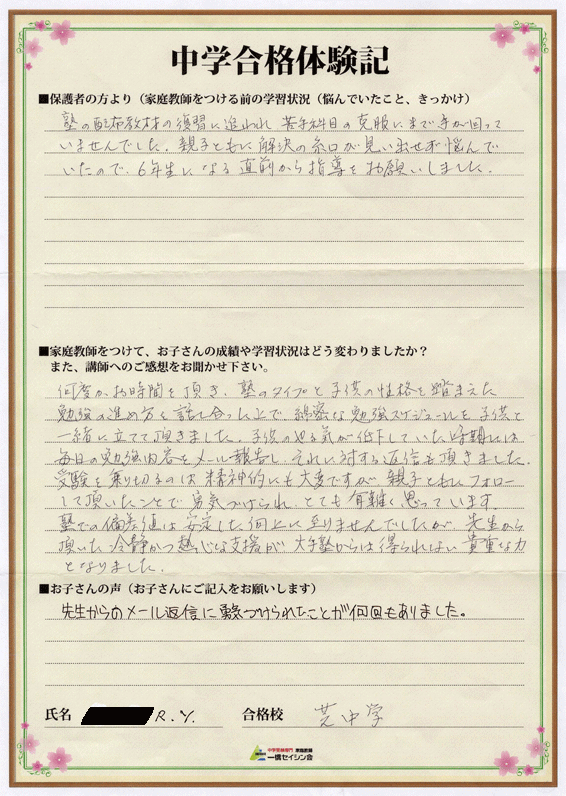 中学合格体験記
■保護者の方より（家庭教師をつける前の学習状況（悩んでいたこと、きっかけ）
塾の配布教材の復習に追われ 苦手科目の克服にまで手が回って
いませんでした。親子ともに解決の糸口が見い出せず悩んで
いたので、6年生になる直前から指導をお願いしました。
■家庭教師をつけて、お子さんの成績や学習状況はどう変わりましたか？
また、講師へのご感想をお聞かせ下さい。
何度かお時間を頂き、塾のタイプと子供の性格を踏まえた
勉強の進め方を話し合った上で、綿密な勉強スケジュールを子供と
一緒に立てて頂きました。子供のやる気が低下していた時期には
毎日の勉強内容をメール報告し、それに対する返信も頂きました。
受験を乗り切るのは精神的にも大変ですが、親子ともにフォロー
して頂いたことで勇気づけられ、とても有難く思っています
塾での偏差値は安定した向上に至りませんでしたが、先生から
頂いた冷静かつ熱心な支援が大手塾からは得られない貴重な力
となりました。
■お子さんの声（お子さんにご記入をお願いします）
先生からのメール返信に勇気づけられたことが何回もありました。
氏名 R.Y. 合格校 芝中学
中学受験専門 家庭教師
一橋セイシン会